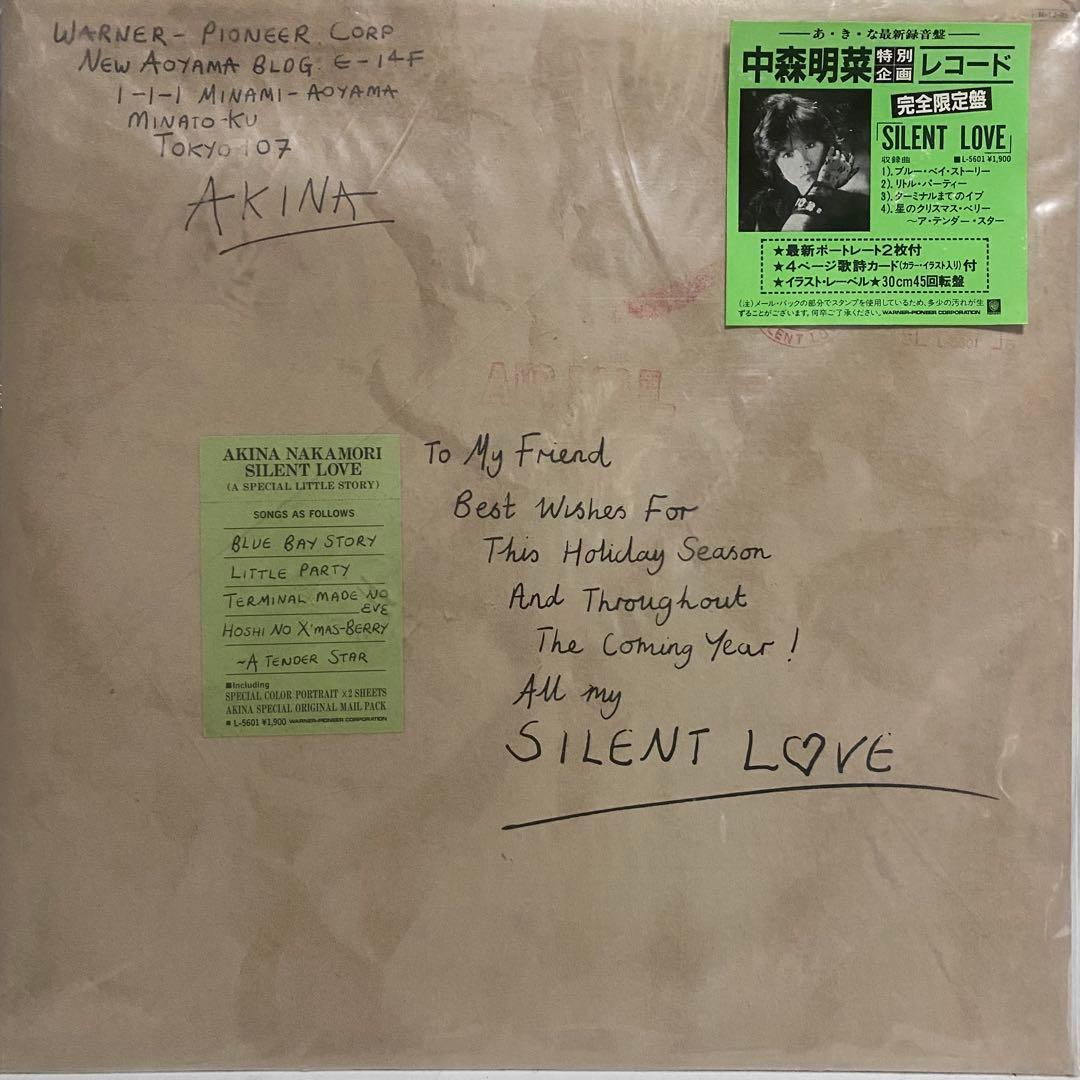 WARNER-PIONEER CORP
NEW AOYAMA BLDG. E-14F
1-1-1 MINAMI-AOYAMA
MINATO-KU
TOKYO 107
AKINA
あ・き・な最新録音盤
中森明菜特別企画レコード
完全限定盤
「SILENT LOVE」
収録曲 ■L-5601 ¥1,900
1).ブルー・ベイ・ストーリー
2).リトル・パーティー
3).ターミナルまでのイブ
4).星のクリスマス・ベリー
～ア・テンダー・スター
★最新ポートレート2枚付
★4ページ歌詩カード(カラー・イラスト入り)付
★イラスト・レーベル★30cm45回転盤
(注)メール・パックの部分でスタンプを使用しているため、多少の汚れが生
ずることがございます。何卒ご了承ください。WARNER-PIONEER CORPORATION
AKINA NAKAMORI
SILENT LOVE
(A SPECIAL LITTLE STORY)
SONGS AS FOLLOWS
BLUE BAY STORY
LITTLE PARTY
TERMINAL MADE NO
EVE
HOSHI NO X'MAS-BERRY
~A TENDER STAR
■Including
SPECIAL COLOR PORTRAIT ×2 SHEETS
AKINA SPECIAL ORIGINAL MAIL PACK
■ L-5601 ¥1,900 WARNER-PIONEER CORPORATION
To My Friend
Best Wishes For
This Holiday Season
And Throughout
The Coming Year!
All my
SILENT L♡VE